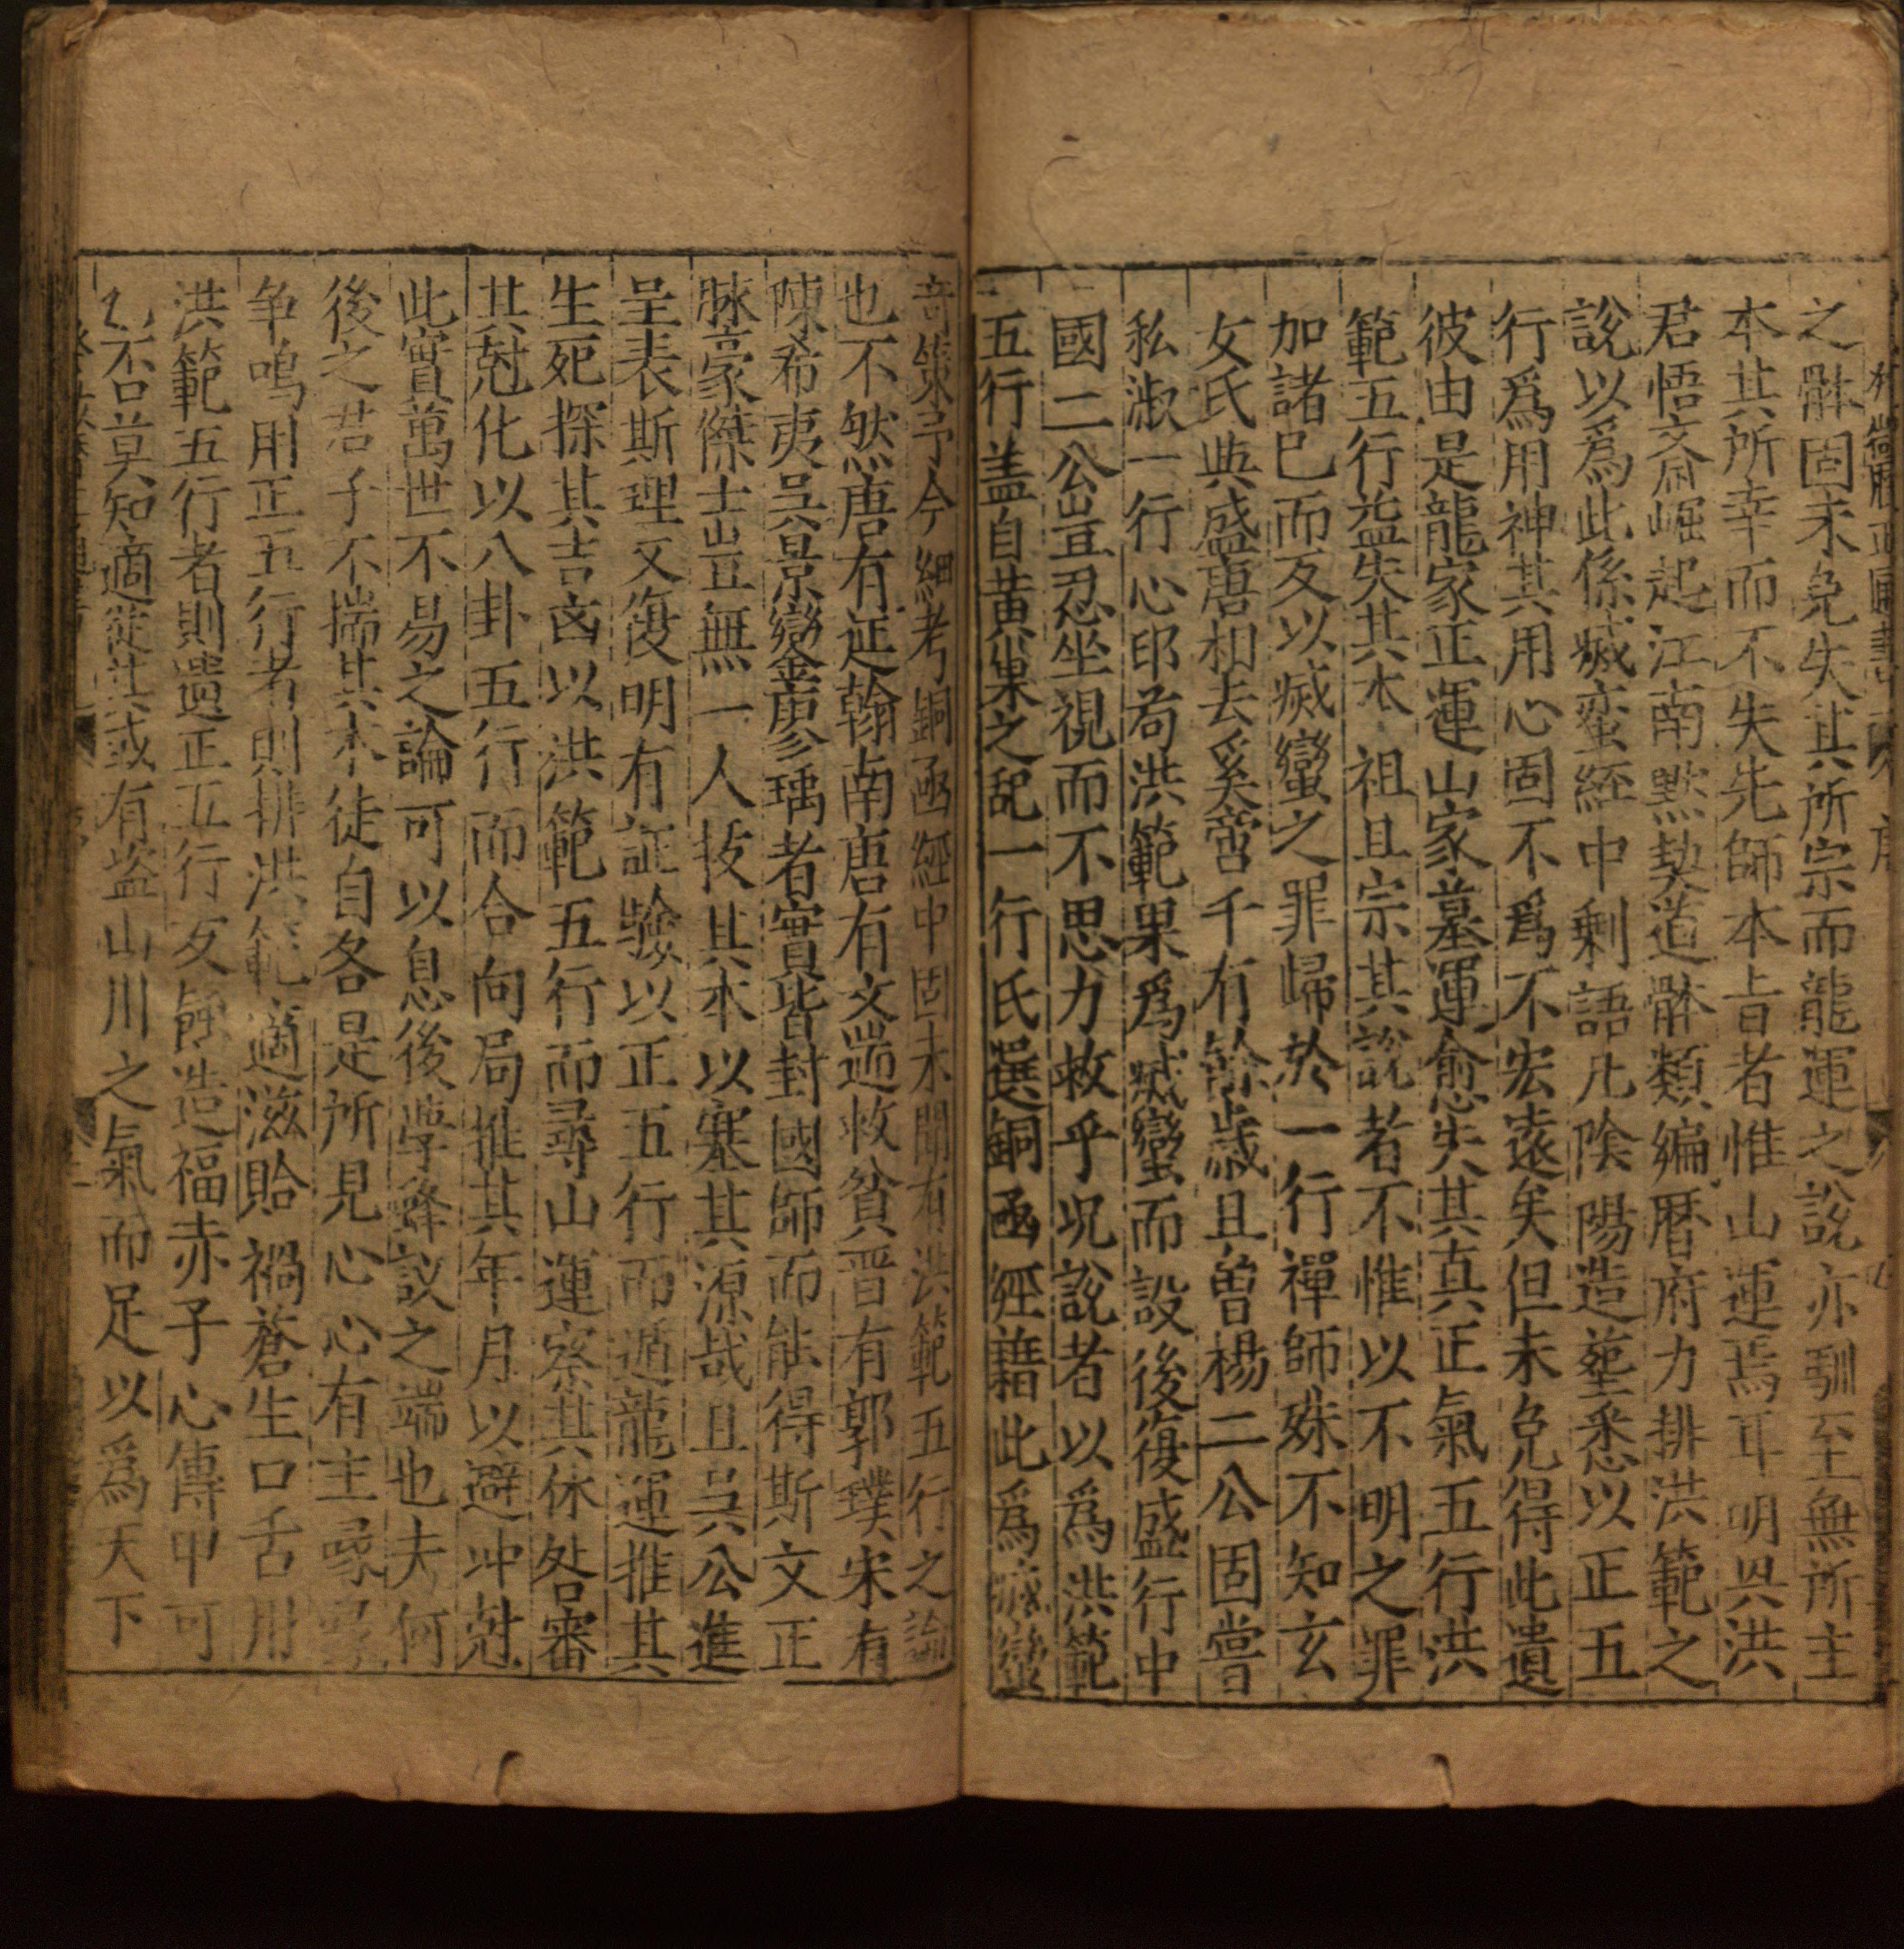 之骵固未免失其所宗而龍運之說亦馴至無所主
本其所幸而不失先師本旨者惟山運焉耳明興洪
君悟齋崛起江南黙契道骵類編曆府力排洪範之
說以爲此係㓕蛮経中剩語凡陰陽造塟悉以正五
行爲用神其用心固不爲不宏遠矣但未免得此遺
彼由是龍家正運山家墓運愈失其真正氣五行洪
範五行益失其本祖且宗其說者不惟以不明之罪
加諸巳而反以㓕蠻之罪歸於一行禪師殊不知玄
女氏與盛唐相去奚啻千有餘歲且曾楊二公固嘗
私淑一行心印苟洪範果爲㓕蠻而設後復盛行中
國二公豈忍坐視而不思力救乎况說者以爲洪範
五行盖自黄巢之乱一行氏選銅函經藉此爲㓕蠻
竒策予今細考銅函經中固未聞有洪範五行之論
也不然唐有延翰南唐有文遄救貧晋有郭璞宋有
陳希夷吳景鸞廖瑀者實皆封國師而能得斯文正
脉豪傑士豈無一人抜其本以塞其源哉且吴公進
呈表斯理又復明有証驗以正五行而遁龍運推其
生死探其吉㐫以洪範五行而尋山運察其休咎審
其尅化以八卦五行而合向局推其年月以避冲尅
此實萬世不易之論可以息後學辯議之端也夫何
後之君子不揣其本徒自各是所見心心有主喙喙
争鳴用正五行者則排洪範適滋貽禍蒼生口舌用
洪範五行者則遺正五行反飾造福赤子心傳甲可
乙否莫知適從其或有盗山川之氣而足以爲天下